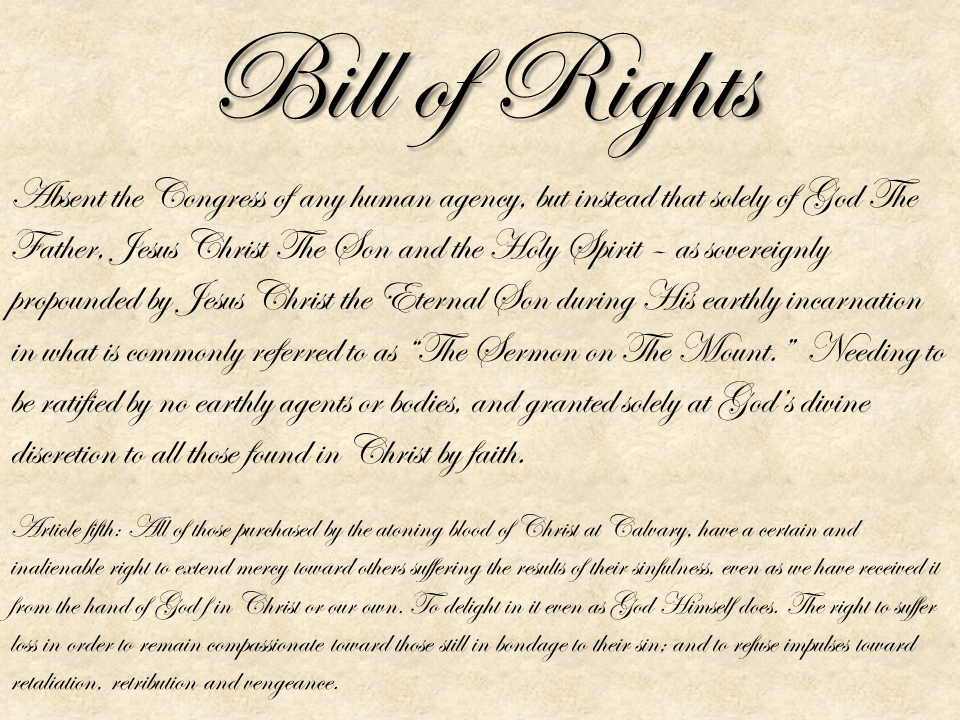 Bill of Rights
Absent the Congress of any human agency, but instead that solely of God The
Father, Jesus Christ The Son and the Holy Spirit – as sovereignly
propounded by Jesus Christ the Eternal Son during His earthly incarnation
in what is commonly referred to as “The Sermon on The Mount.” Needing to
be ratified by no earthly agents or bodies, and granted solely at God’s divine
discretion to all those found in Christ by faith.
Article fifth: All of those purchased by the atoning blood of Christ at Calvary, have a certain and
inalienable right to extend mercy toward others suffering the results of their sinfulness, even as we have received it
from the hand of God f in Christ or our own. To delight in it even as God Himself does. The right to suffer
loss in order to remain compassionate toward those still in bondage to their sin; and to refuse impulses toward
retaliation, retribution and vengeance.